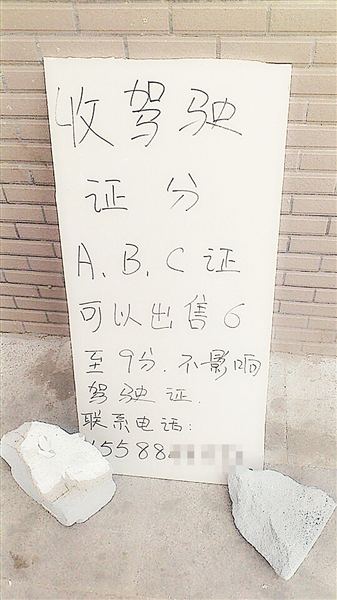 收驾驶
证分
A、B、C证
可以出售6
至9分.不影响
驾驶证.
联系电话：
15588